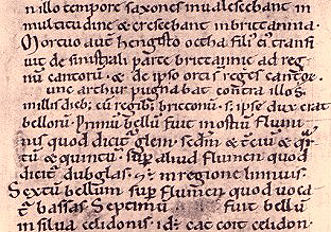 nillo tempore saxones inualescebant in
multitudine & crescebant in brittannia.
Mortuo aut̄ hengisto octha fili᷒ ei᷒ transi
uit de sinistrali parte brittannie ad reg
nū cantorū. & de ipso orti s̄ reges cantor᷒.
Tunc arthur pugnabat contra illos
in illis dieb᷒ cū regib᷒ brittonū. s; ipse dux erat
belloru. Primū bellū fuit in ostiū flumi
nis quod dicit̄ glein. secdm̄ & t̄ciū & q̈r
tū & quintū. sup̱ aliud flumen quod
dicit̄ dubglas. & ē in regione linnuis.
Sextū bellum sup̱ flumen quod uoca
t̄ bassas. Septimū fuit bellū
in silua celidonis. id ē cat coit celidon.